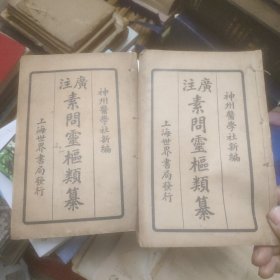 神州醫學社新編
廣注素問靈樞類纂
上海世界書局發行
神州醫學社新編
廣注素問靈樞類纂
上海世界書局發行